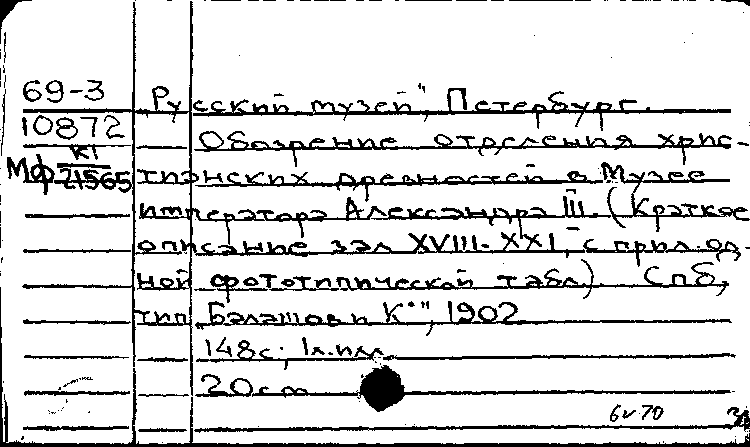 69-3
10872
Мф К1
21565
„Русский музей", Петербург.
Обозрение отделения хрис-
тианских древностей в Музее
императора Александра III. (Краткое
описание зал XVIII-XXI, с прил. од-
ной фототипической табл.) Спб,
тип. „Балашов и К°", 1902
148с; 1л.илл.
20cm